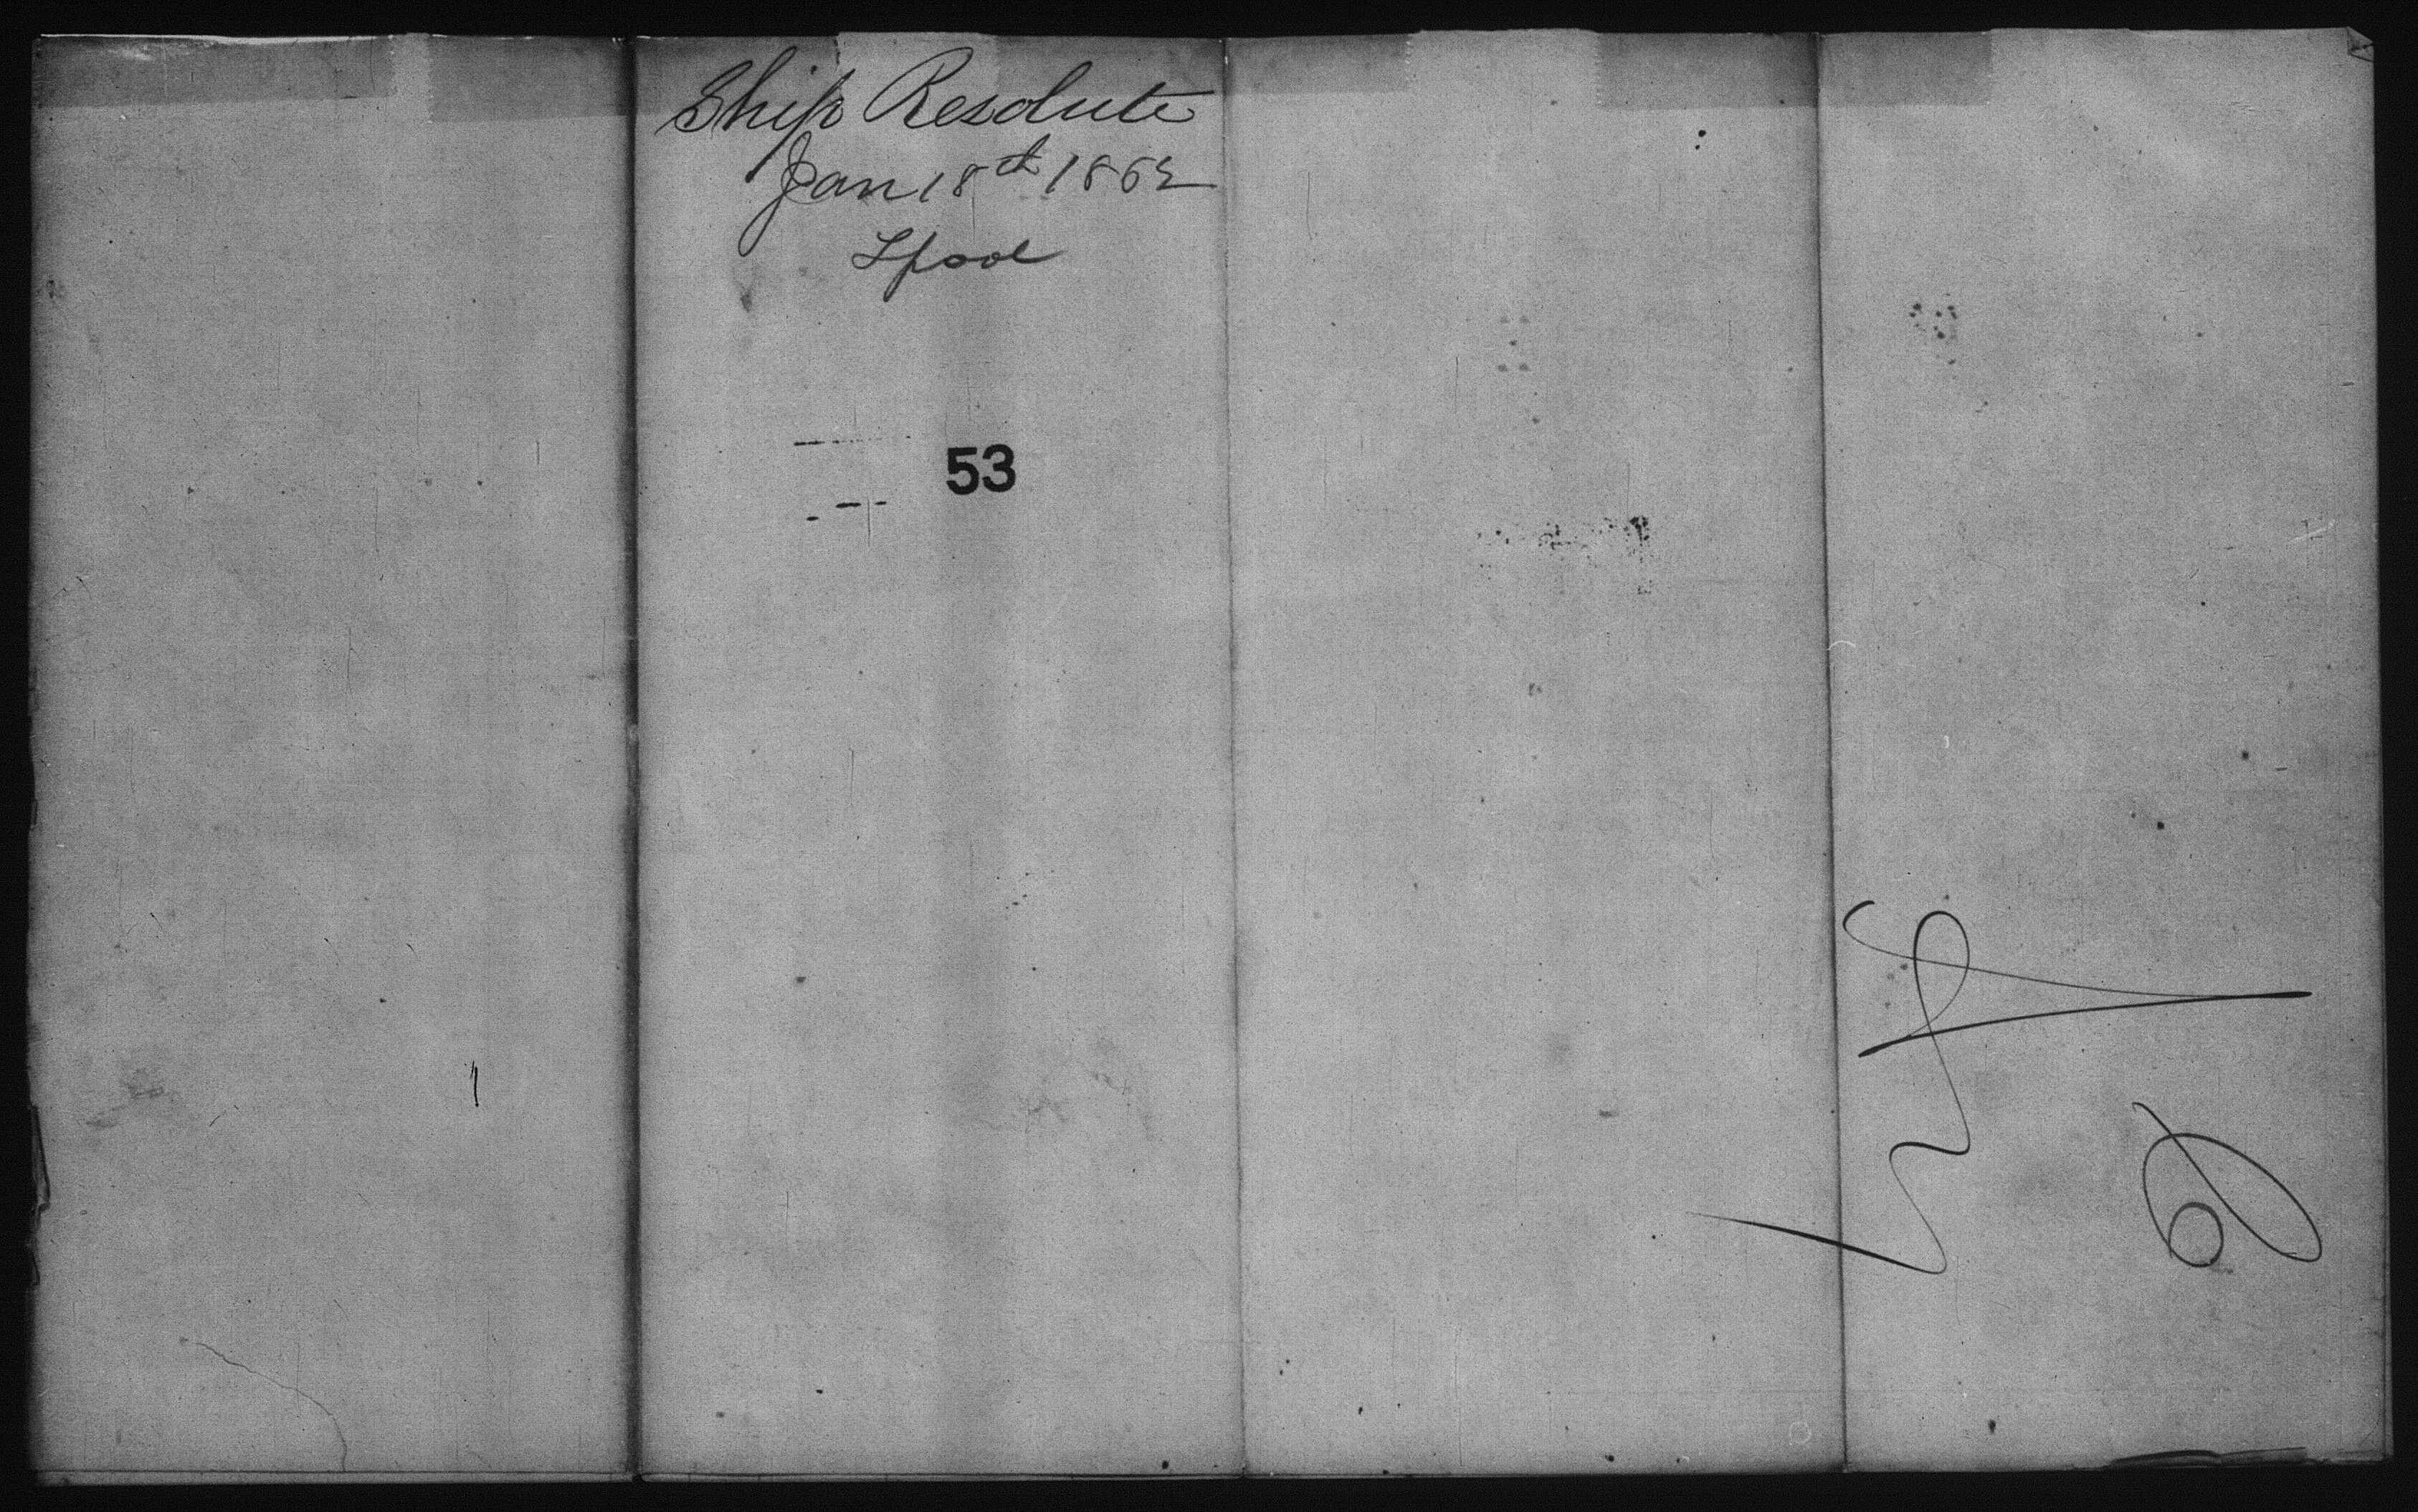 Ship Resolute
Jan 18th 1862
Lpool
53